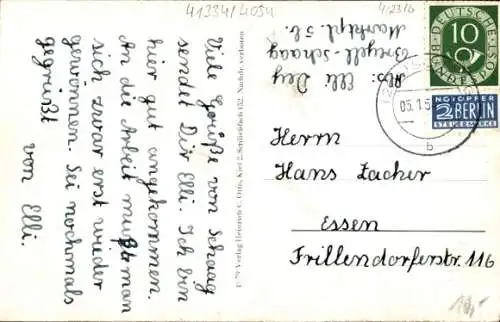 41334/4054
4/23/6
Viele Grüße von Schaag
sendet Dir Elli. Ich bin
hier gut angekommen.
An die Arbeit muß man
sich zwar erst wieder
gewöhnen. Sei nochmals
gegrüßt
von Elli.
Verlag Heinrich C. Otto, Kiel 2, Schließfach 152. Nachdr. verboten
Abs: Elli
Breyell-Schaag
Marktpl. 5b.
DEUTSCHE
BUNDESPOST
10
NOTOPFER
2 BERLIN
STEUERMARKE
05.1.5
b
Herrn
Hans Zacher
Essen
Frillendorferstr. 116